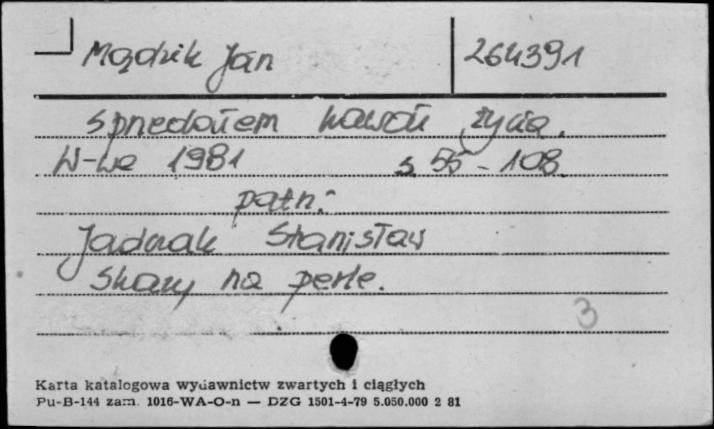 Mązdzik Jan 264391
Sprzedałem kawał życia.
W-wa 1981 s 55-108
patrz:
Jadczak Stanisław
Skazy na perle.
3
Karta katalogowa wydawnictw zwartych i ciągłych
Pu-B-144 zam. 1016-WA-O-n — DZG 1501-4-79 5.050.000 2 81